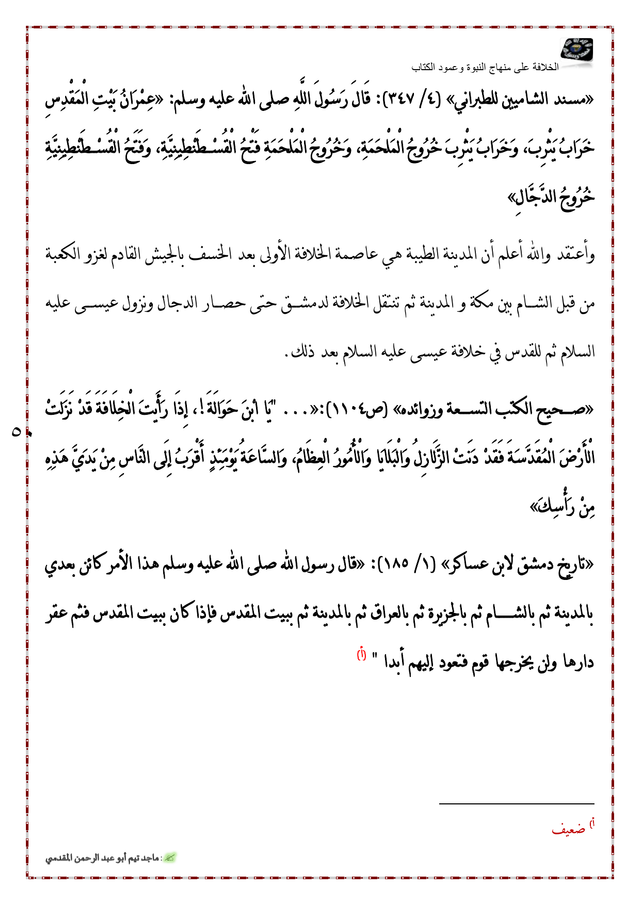 الخلافة على منهاج النبوة وعمود الكتاب
«مسند الشاميين للطبراني» (٤/ ٣٤٧): قَالَ رَسُولَ اللَّهِ صلى الله عليه وسلم: «عِمْرَانُ بَيْتِ الْمَقْدِسِ
خَرَابُ يَثْرِبَ، وَخَرَابُ يَثْرِبَ خُرُوجُ الْمَلْحَمَةِ، وَخُرُوجُ الْمَلْحَمَةِ فَتْحُ الْقُسْطَنْطِينِيَّةِ، وَفَتْحُ الْقُسْطَنْطِينِيَّةِ
خُرُوجُ الدَّجَّالِ»
وأعتقد والله أعلم أن المدينة الطيبة هي عاصمة الخلافة الأولى بعد الخسف بالجيش القادم لغزو الكعبة
من قبل الشام بين مكة و المدينة ثم تنتقل الخلافة لدمشق حتى حصار الدجال ونزول عيسى عليه
السلام ثم للقدس في خلافة عيسى عليه السلام بعد ذلك.
«صحيح الكتب التسعة وزوائده» (ص١١٠٤):«... "يَا ابْنَ حَوَالَةَ!، إِذَا رَأَيتَ الْخِلَافَةَ قَدْ نَزَلَتْ
٥٠
الْأَرْضَ الْمُقَدَّسَةَ فَقَدْ دَنَتْ الزَّلَازِلُ وَالْبَلَايَا وَالْأُمُورُ الْعِظَامُ، وَالسَّاعَةُ يَوْمَئِذٍ أَقْرَبُ إِلَى النَّاسِ مِنْ يَدَيَّ هَذِهِ
مِنْ رَأْسِكَ»
«تاريخ دمشق لابن عساكر» (١/ ١٨٥): «قال رسول الله صلى الله عليه وسلم هذا الأمر كائن بعدي
بالمدينة ثم بالشام ثم بالجزيرة ثم بالعراق ثم بالمدينة ثم ببيت المقدس فإذا كان ببيت المقدس فثم عقر
دارها ولن يخرجها قوم فتعود إليهم أبدا " (أ)
أ) ضعيف
: ماجد تيم أبو عبد الرحمن المقدسي